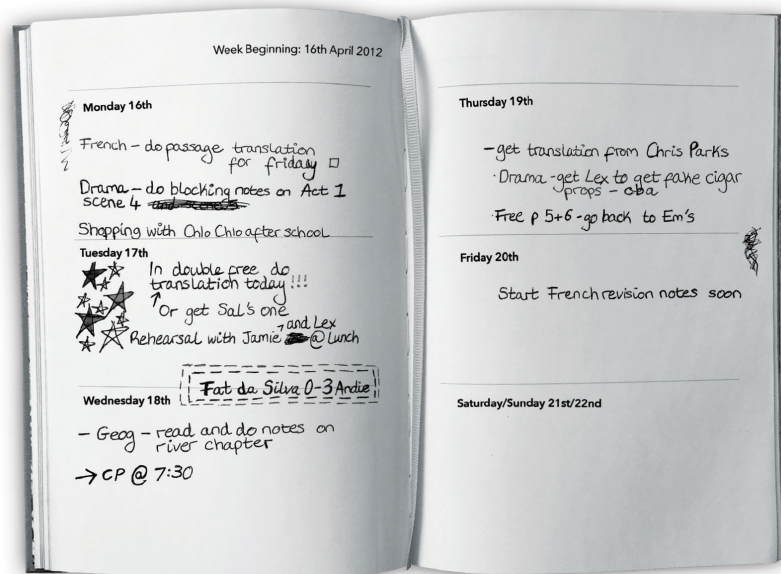 Week Beginning: 16th April 2012
Monday 16th
French – do passage translation
for friday
Drama – do blocking notes on Act 1
scene 4
Shopping with Chlo Chlo after school
Tuesday 17th
In double free do
translation today !!!
Or get Sal's one
and Lex
Rehearsal with Jamie @ Lunch
Fat da Silva 0-3 Andie
Wednesday 18th
– Geog – read and do notes on
river chapter
→ CP @ 7:30
Thursday 19th
– get translation from Chris Parks
· Drama - get Lex to get fake cigar
props – cba
· Free p 5+6 - go back to Em's
Friday 20th
Start French revision notes soon
Saturday/Sunday 21st/22nd